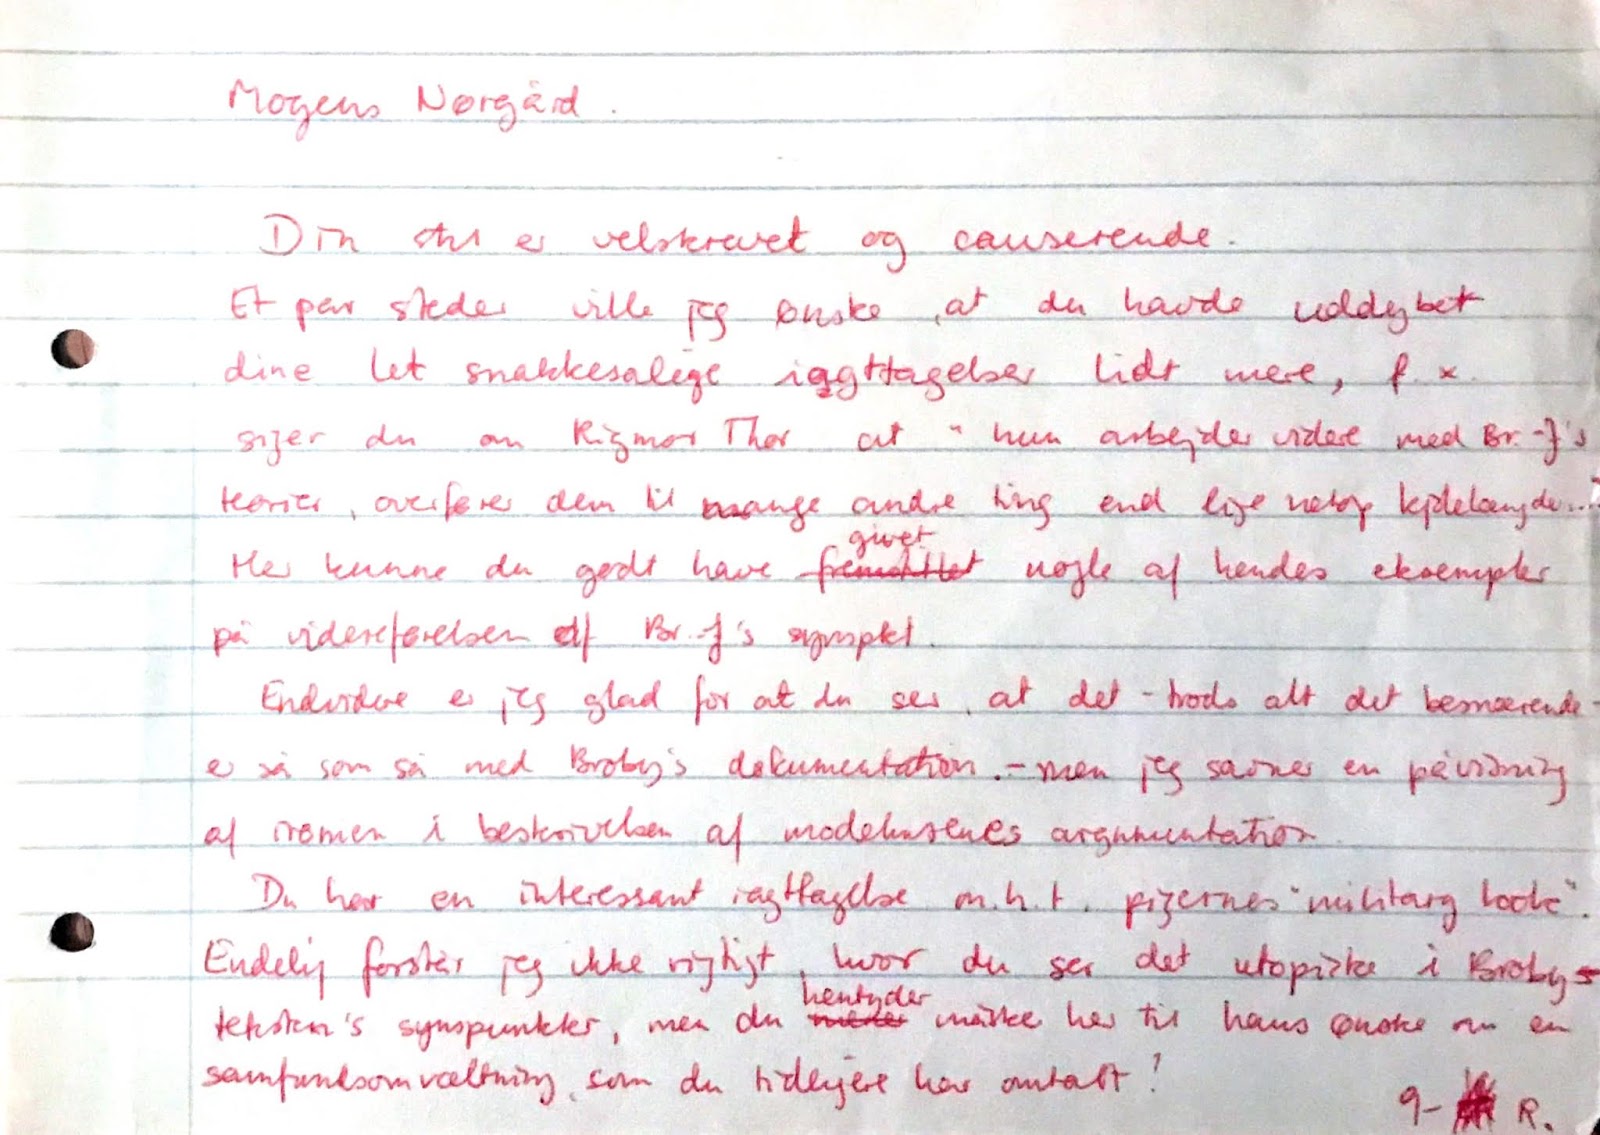 Mogens Nørgård.
Din stil er velskrevet og causerende.
Et par steder ville jeg ønske, at du havde uddybet
dine let snakkesalige iagttagelser lidt mere, f.x.
siger du om Rigmor Thor at "hun arbejder videre med Br.-J's
teorier, overfører dem til mange andre ting end lige netop kjolelængde..."
Her kunne du godt have givet nogle af hendes eksempler
på videreførelsen af Br.-J's synspkt.
Endvidere er jeg glad for at du ser, at det - trods alt det besnærende -
er så som så med Broby's dokumentation. - men jeg savner en påvisning
af ironien i beskrivelsen af argumentation
Du har en interessant iagttagelse m.h.t. pigernes "military look".
Endelig forstår jeg ikke rigtigt, hvor du ser det utopiske i Broby-
teksten's synspunkter, men du hentyder måske her til hans ønske om en
samfundsomvæltning, som du tidligere har omtalt!
9- R.